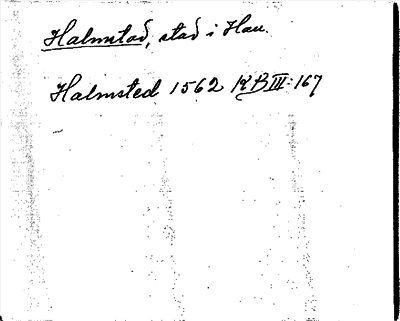 Halmstad, stad i Hall.
Halmsted 1562 KB III:167